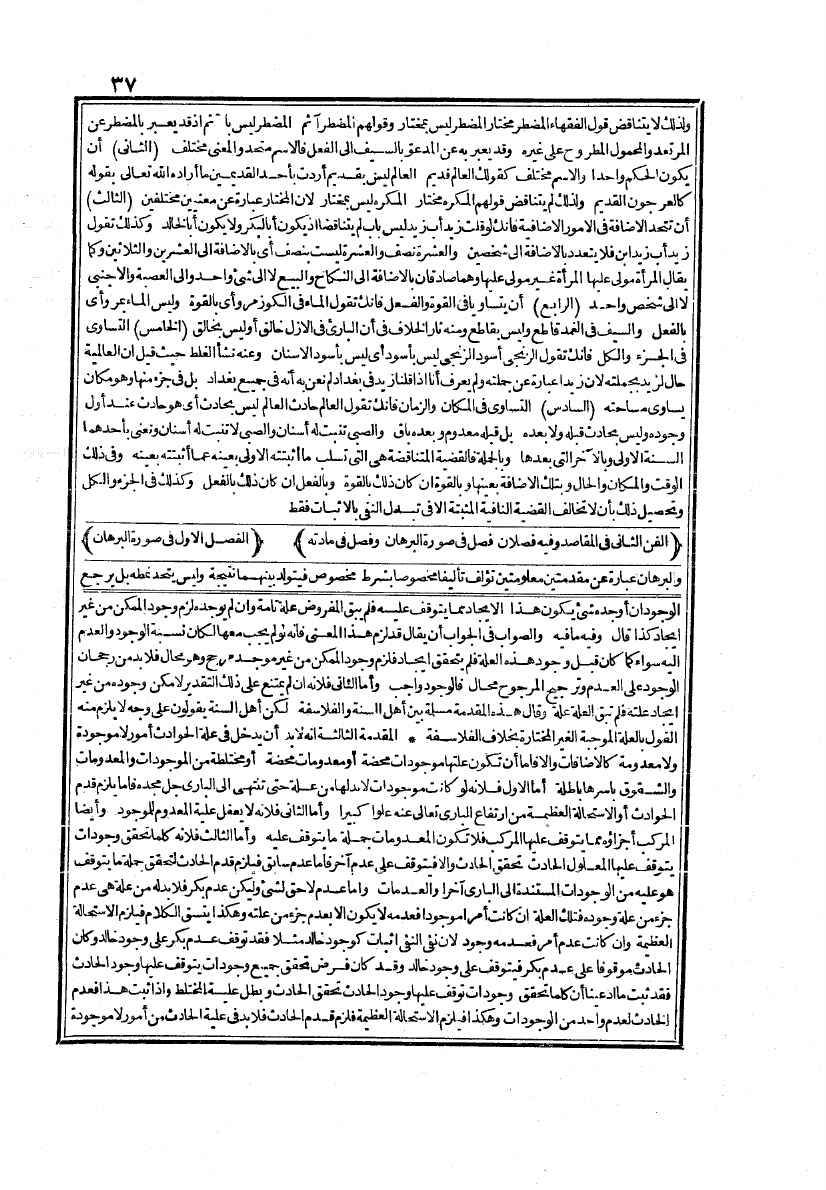 ٣٧
ولذلك لا يتناقض قول الفقهاء المضطر مختار المضطر ليس بمختار وقولهم المضطر آثم المضطر ليس بآثم اذ قد يعبر بالمضطر عن
المرتعد والمحمول المطروح على غيره وقد يعبر به عن المدعو بالسيف الى الفعل فالاسم متحد والمعنى مختلف (الثانى) أن
يكون الحكم واحدا والاسم مختلف كقولك العالم قديم العالم ليس بقديم أردت بأحد القديمين ما أراده الله تعالى بقوله
كالعرجون القديم ولذلك لم يتناقض قولهم المكره مختار المكره ليس بمختار لان المختار عبارة عن معنيين مختلفين (الثالث)
أن تتحد الاضافة فى الامور الاضافية فانك لو قلت زيد أب زيد ليس باب لم يتناقضا اذ يكون أبا لبكر ولا يكون أبا لخالد وكذلك تقول
زيد أب زيد ابن فلا يتعدد بالاضافة الى شخصين والعشرة نصف والعشرة ليست بنصف أى بالاضافة الى العشرين والثلاثين وكما
يقال المرأة مولى عليها المرأة غير مولى عليها وهما صادقان بالاضافة الى النكاح والبيع لا الى شئ واحد والى العصبة والاجنبى
لا الى شخص واحد (الرابع) أن يتساويا فى القوة والفعل فانك تقول الماء فى الكوز مرو أى بالقوة وليس الماء بمرو أى
بالفعل والسيف فى الغمد قاطع وليس بقاطع ومنه ثار الخلاف فى أن البارئ فى الازل خالق أو ليس بخالق (الخامس) التساوى
فى الجزء والكل فانك تقول الزنجى أسود الزنجى ليس بأسود أى ليس بأسود الاسنان وعنه نشأ الغلط حيث قيل ان العالمية
حال لزيد بجملته لان زيدا عبارة عن جملته ولم يعرف أنا اذا قلنا زيد فى بغداد لم نعن به أنه فى جميع بغداد بل فى جزء منها وهو مكان
يساوى مساحته (السادس) التساوى فى المكان والزمان فانك تقول العالم حادث العالم ليس بحادث أى هو حادث عند أول
وجوده وليس بحادث قبله ولا بعده بل قبله معدوم وبعده باق والصبى تنبت له أسنان والصبى لا تنبت له أسنان ونعنى بأحدهما
السنة الاولى وبالآخر التى بعدها وبالجملة فالقضية المتناقضة هى التى تسلب ما أثبتته الاولى بعينه عما أثبتته بعينه وفى ذلك
الوقت والمكان والحال وبتلك الاضافة بعينها وبالقوة ان كان ذلك بالقوة وبالفعل ان كان ذلك بالفعل وكذلك فى الجزء والكل
وتحصيل ذلك بأن لا تخالف القضية النافية المثبتة الا فى تبدل النفى بالاثبات فقط
﴿الفن الثانى فى المقاصد وفيه فصلان فصل فى صورة البرهان وفصل فى مادته﴾ ﴿الفصل الاول فى صورة البرهان﴾
والبرهان عبارة عن مقدمتين معلومتين تؤلف تأليفا مخصوصا بشرط مخصوص فيتولد بينهما نتيجة وليس يتحد نمطه بل يرجع
الوجود ان أوجده شئ يكون هذا الايجاد مما يتوقف عليه فلم يبق المفروض علة تامة وان لم يوجده لزم وجود الممكن من غير
ايجاد كذا قال وفيه ما فيه والصواب فى الجواب أن يقال قد لزم هذا المعنى فانه لو لم يجب معها لكان نسبة الوجود والعدم
اليه سواء كما كان قبل وجود هذه العلة فلم يتحقق ايجاد فلزم وجود الممكن من غير موجد مرجح وهو محال فلا بد من رجحان
الوجود على العدم وترجيح المرجوح محال فالوجود واجب وأما الثانى فلانه ان لم يمتنع على ذلك التقدير لامكن وجوده من غير
ايجاد علته فلم تبق العلة علة وقال هذه المقدمة مسلمة بين أهل السنة والفلاسفة لكن أهل السنة يقولون على وجه لا يلزم منه
القول بالعلة الموجبة الغير المختارة بخلاف الفلاسفة * المقدمة الثالثة انه لا بد أن يدخل فى علة الحوادث أمور لا موجودة
ولا معدومة كالاضافات والا فاما أن تكون علتها موجودات محضة أو معدومات محضة أو مختلطة من الموجودات والمعدومات
والشقوق باسرها باطلة أما الاول فلانه لو كانت موجودات لا بد لها من علة حتى تنتهى الى البارى جل مجده فاما يلزم قدم
الحوادث أو الاستحالة العظيمة من ارتفاع البارى تعالى عنه علوا كبيرا وأما الثانى فلانه لا يعقل علية المعدوم للموجود وأيضا
المركب أجزاؤه مما يتوقف عليها المركب فلا تكون المعدومات جملة ما يتوقف عليه وأما الثالث فلانه كلما تحقق وجودات
يتوقف عليها المعلول الحادث تحقق الحادث والا فيتوقف على عدم آخر فاما عدم سابق فيلزم قدم الحادث لتحقق جملة ما يتوقف
هو عليه من الوجودات المستندة الى البارى آخرا والعدمات واما عدم لاحق لشئ وليكن عدم بكر فلا بد له من علة هى عدم
جزء من علة وجوده فتلك العلة ان كانت أمرا موجودا فعدمه لا يكون الا بعدم جزء من علته وهكذا ينسق الكلام فيلزم الاستحالة
العظيمة وان كانت عدم أمر فعدمه وجود لان نفى النفى اثبات كوجود خالد مثلا فقد توقف عدم بكر على وجود خالد وكان
الحادث موقوفا على عدم بكر فيتوقف على وجود خالد وقد كان فرض تحقق جميع وجودات يتوقف عليها وجود الحادث
فقد ثبت ما ادعينا أن كلما تحقق وجودات توقف عليها وجود الحادث تحقق الحادث وبطل علية المختلط واذا ثبت هذا فعدم
الحادث لعدم واحد من الوجودات وهكذا فيلزم الاستحالة العظيمة فلزم قدم الحادث فلا بد فى علية الحادث من أمور لا موجودة